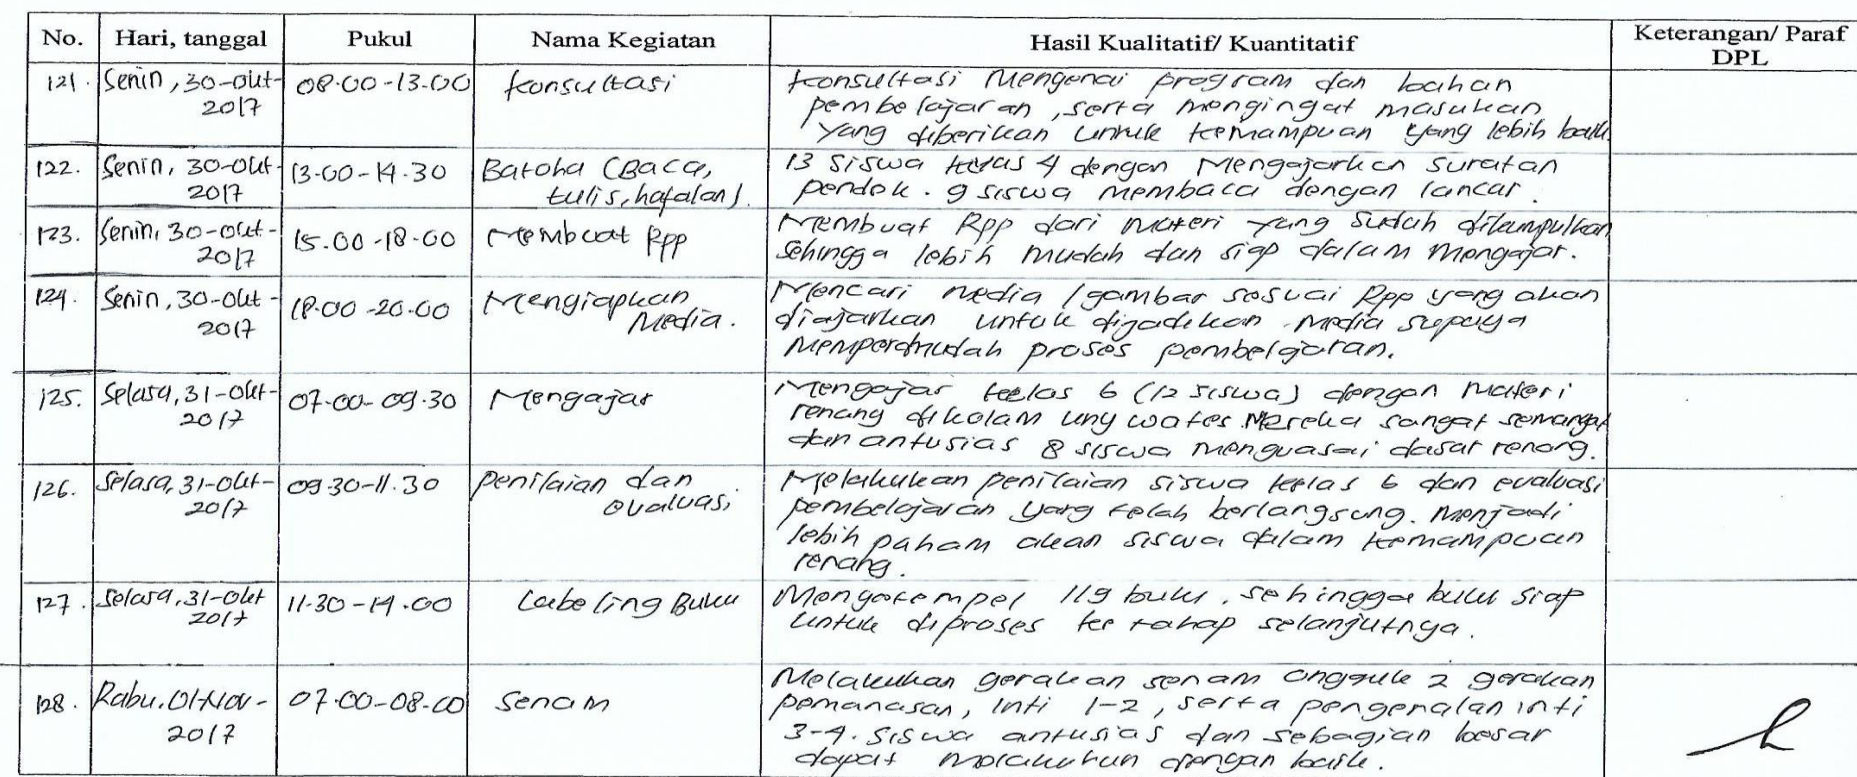 No. Hari, tanggal Pukul Nama Kegiatan Hasil Kualitatif/ Kuantitatif Keterangan/ Paraf DPL
121. Senin, 30-okt-2017 08.00-13.00 konsultasi konsultasi Mengenai program dan bahan
pembelajaran, serta mengingat masukan
yang diberikan untuk kemampuan yang lebih baik
122. Senin, 30-okt-2017 13.00-14.30 Batoha (Baca, tulis, hafalan). 13 siswa kelas 4 dengan Mengajarkan suratan
pendek. 9 siswa membaca dengan lancar.
123. Senin, 30-okt-2017 15.00-18.00 Membuat Rpp Membuat Rpp dari materi yang sudah dikumpulkan
sehingga lebih mudah dan siap dalam mengajar.
124. Senin, 30-okt-2017 18.00-20.00 Mengiapkan Media. Mencari media / gambar sesuai Rpp yang akan
diajarkan untuk dijadikan media supaya
mempermudah proses pembelajaran.
125. Selasa, 31-okt-2017 07.00-09.30 Mengajar Mengajar kelas 6 (12 siswa) dengan materi
renang dikolam uny wates. Mereka sangat semangat
dan antusias 8 siswa menguasai dasar renang.
126. Selasa, 31-okt-2017 09.30-11.30 penilaian dan evaluasi Melakukan penilaian siswa kelas 6 dan evaluasi
pembelajaran yang telah berlangsung. Menjadi
lebih paham akan siswa dalam kemampuan
renang.
127. Selasa, 31-okt 2017 11.30-14.00 Labeling Buku 119 buku, sehingga buku siap
untuk diproses ke tahap selanjutnya.
128. Rabu, 01-Nov-2017 07.00-08.00 Senam Melakukan gerakan senam angguk 2 gerakan
pemanasan, inti 1-2, serta pengenalan inti
3-4. siswa antusias dan sebagian besar
dapat melakukan dengan baik.